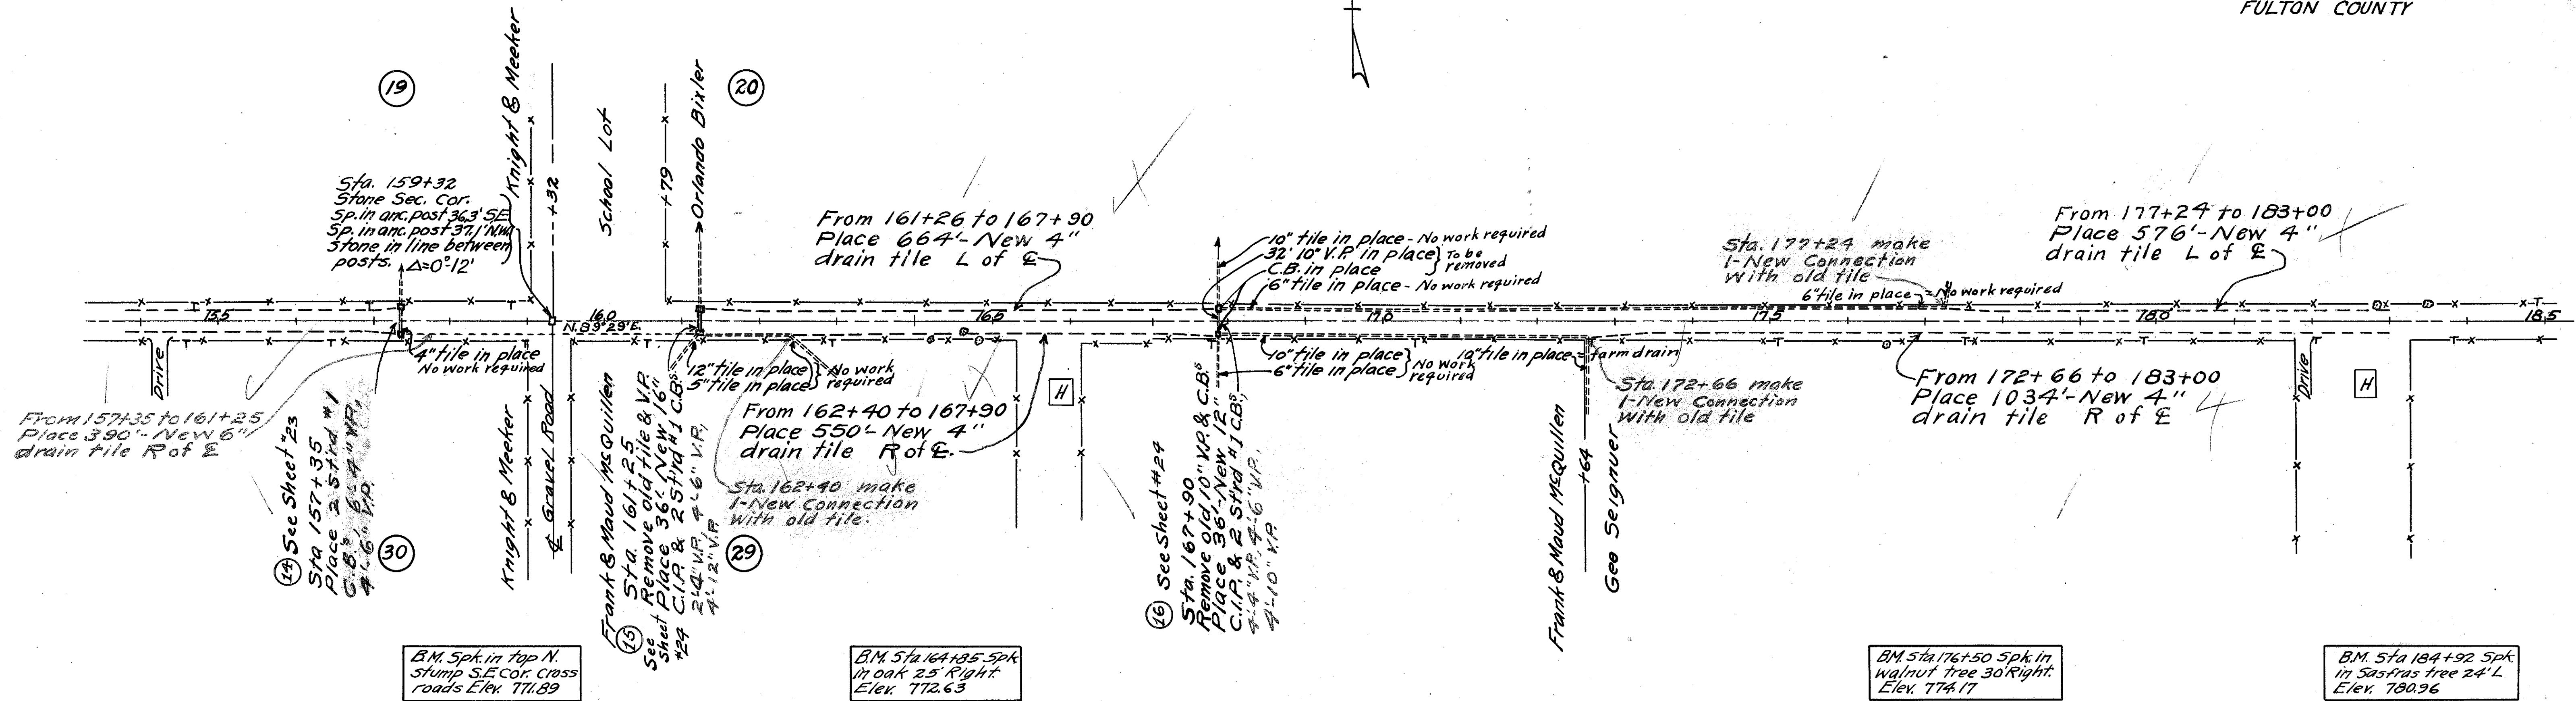 FULTON COUNTY
19
20
Knight & Meeker
School Lot
Orlando Bixler
+32
+79
Sta. 159+32
Stone Sec. Cor.
Sp. in anc. post 36.3' SE
Sp. in anc. post 37.1' N.W.
Stone in line between
posts. Δ=0°-12'
From 161+26 to 167+90
Place 664'- New 4"
drain tile L of ℄
10" tile in place - No work required
32' 10" V.P. in place } To be
C.B. in place } removed
6" tile in place - No work required
Sta. 177+24 make
1-New Connection
With old tile
6" tile in place - No work required
From 177+24 to 183+00
Place 576'- New 4"
drain tile L of ℄
155
160
165
170
175
180
185
N.89°29'E.
T
Drive
4" tile in place
No work required
12" tile in place } No work
5" tile in place } required
10" tile in place } No work
6" tile in place } required
12" tile in place = farm drain
From 157+35 to 161+25
Place 390'- New 6"
drain tile R of ℄
From 162+40 to 167+90
Place 550'- New 4"
drain tile R of ℄
H
Sta. 172+66 make
1-New Connection
With old tile
From 172+66 to 183+00
Place 1034'- New 4"
drain tile R of ℄
4
Drive
H
Sta. 162+40 make
1-New Connection
With old tile.
14 See Sheet #23
Sta 157+35
Place 2 St'rd #1
C.B.s 6'-4" V.P.,
4'-6" V.P.
30
Knight & Meeker
℄ Gravel Road
Frank & Maud McQuillen
15
Sta. 161+25
See Remove old tile & V.P.
Sheet Place 36'- New 16"
#24 C.I.P. & 2 St'rd #1 C.B.s
2'-4" V.P., 4'-6" V.P.,
4'-12" V.P.
29
16 See Sheet #24
Sta. 167+90
Remove old 10" V.P. & C.B.s
Place 36'- New 12"
C.I.P. & 2 St'rd #1 C.B.s,
4'-4" V.P., 4'-6" V.P.,
4'-10" V.P.
Frank & Maud McQuillen
+64
Geo Seignuer
B.M. Spk. in top N.
stump S.E. Cor. cross
roads Elev. 771.89
B.M. Sta 164+85 Spk
in oak 25' Right.
Elev. 772.63
B.M. Sta. 176+50 Spk. in
walnut tree 30' Right.
Elev. 774.17
B.M. Sta 184+92 Spk
in Sasfras tree 24' L
Elev. 780.96